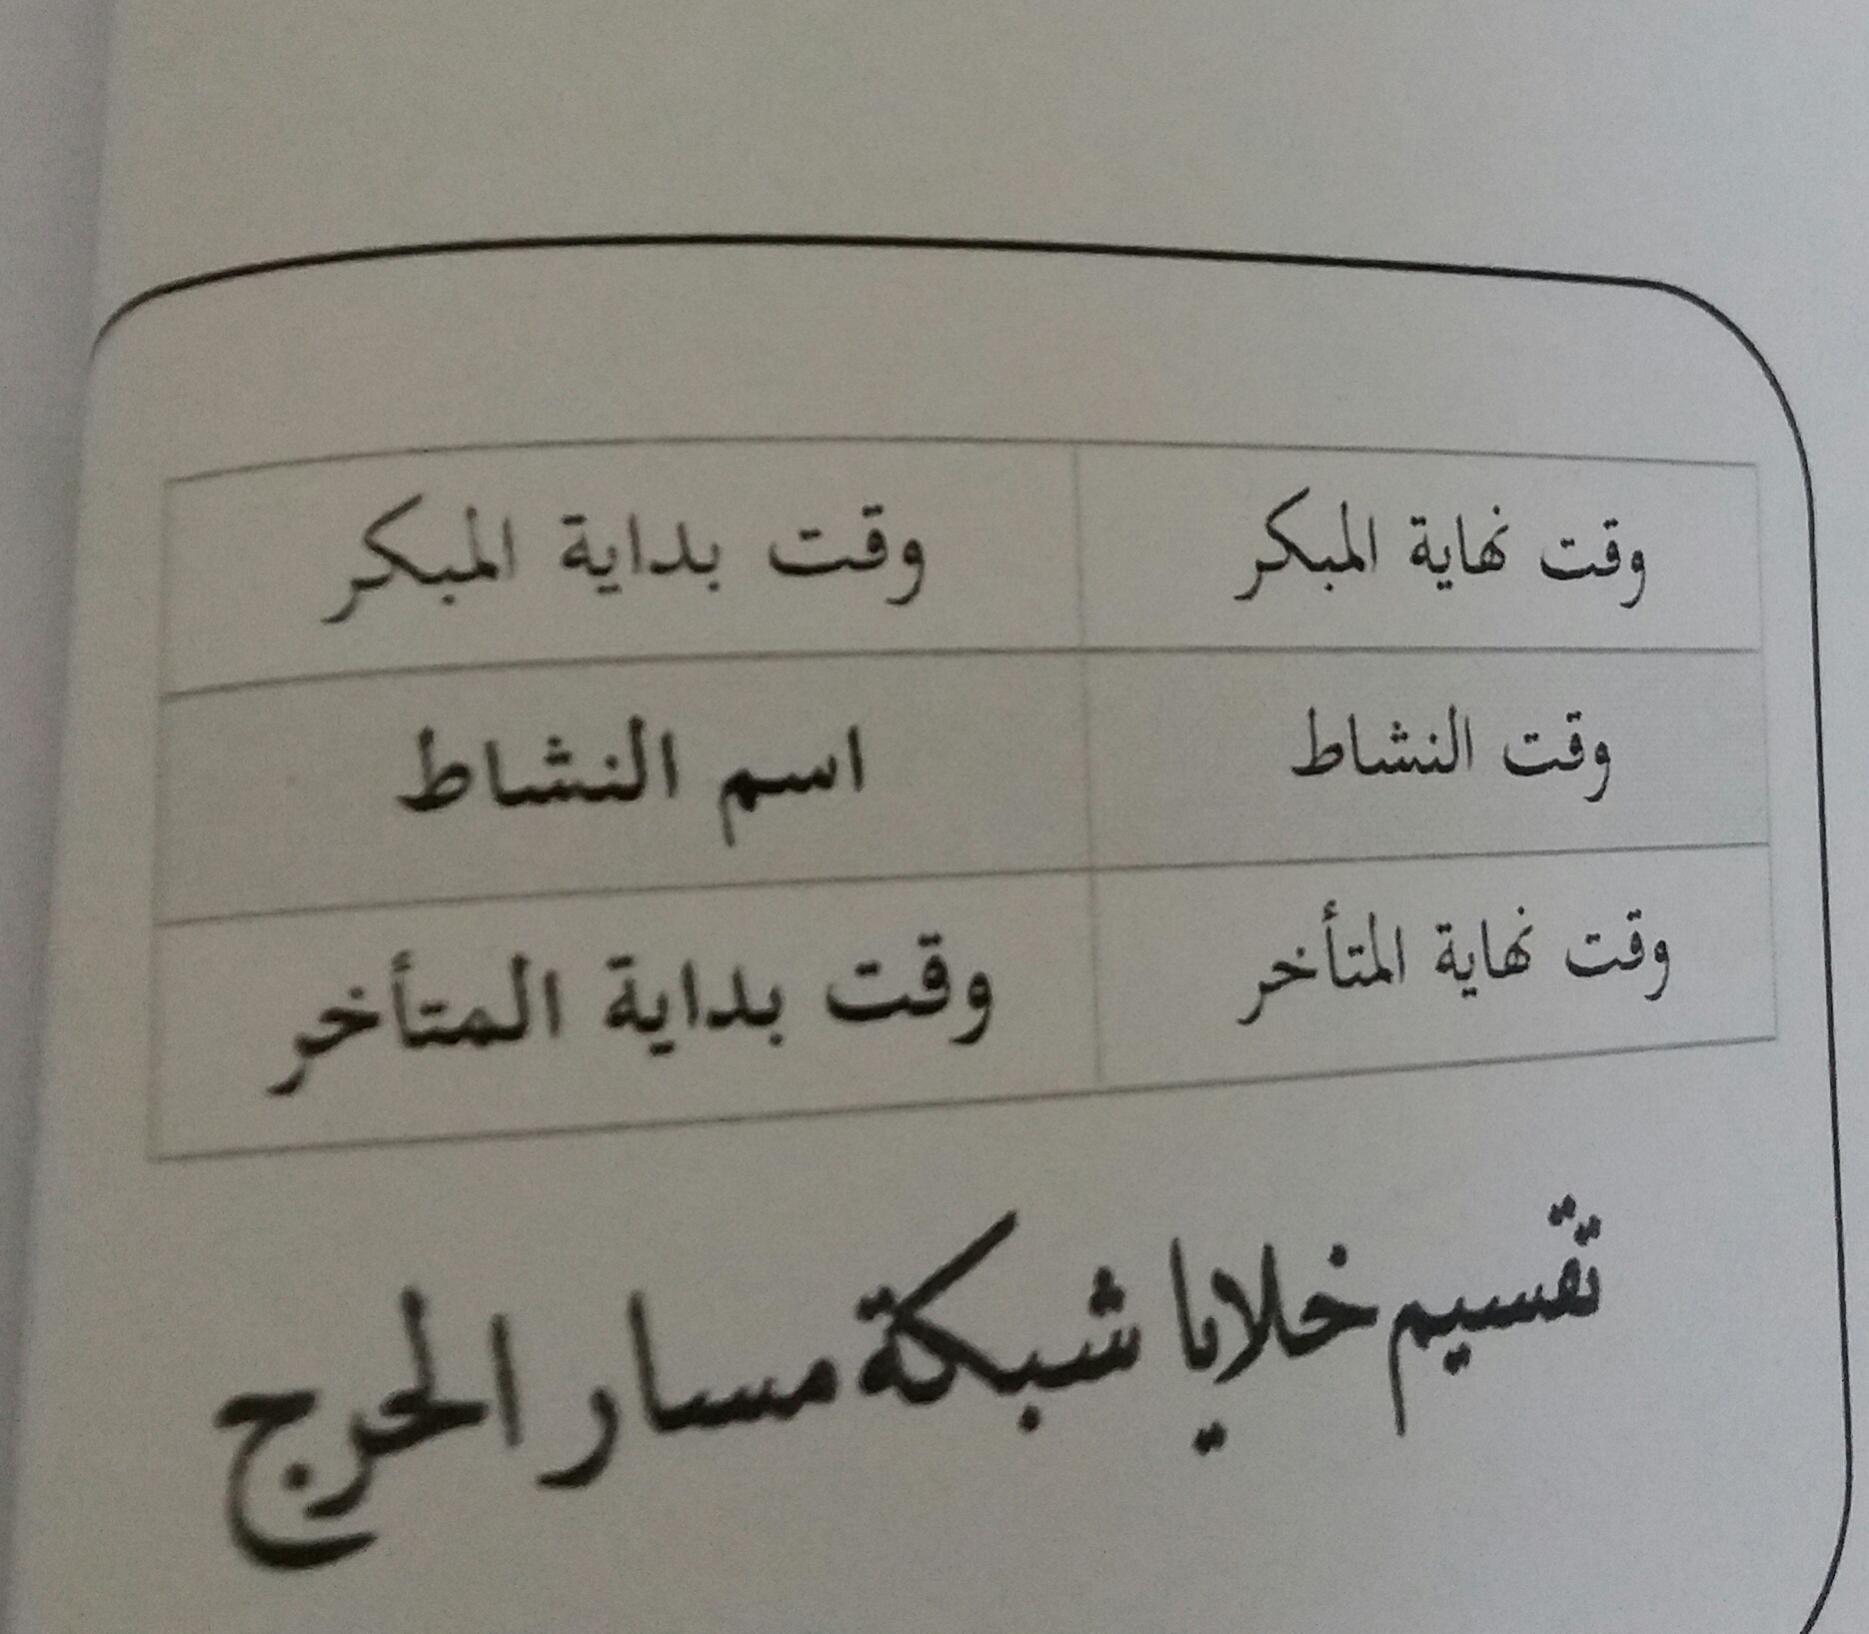 وقت نهاية المبكر وقت بداية المبكر
وقت النشاط اسم النشاط
وقت نهاية المتأخر وقت بداية المتأخر
تقسيم خلايا شبكة مسار الحرج